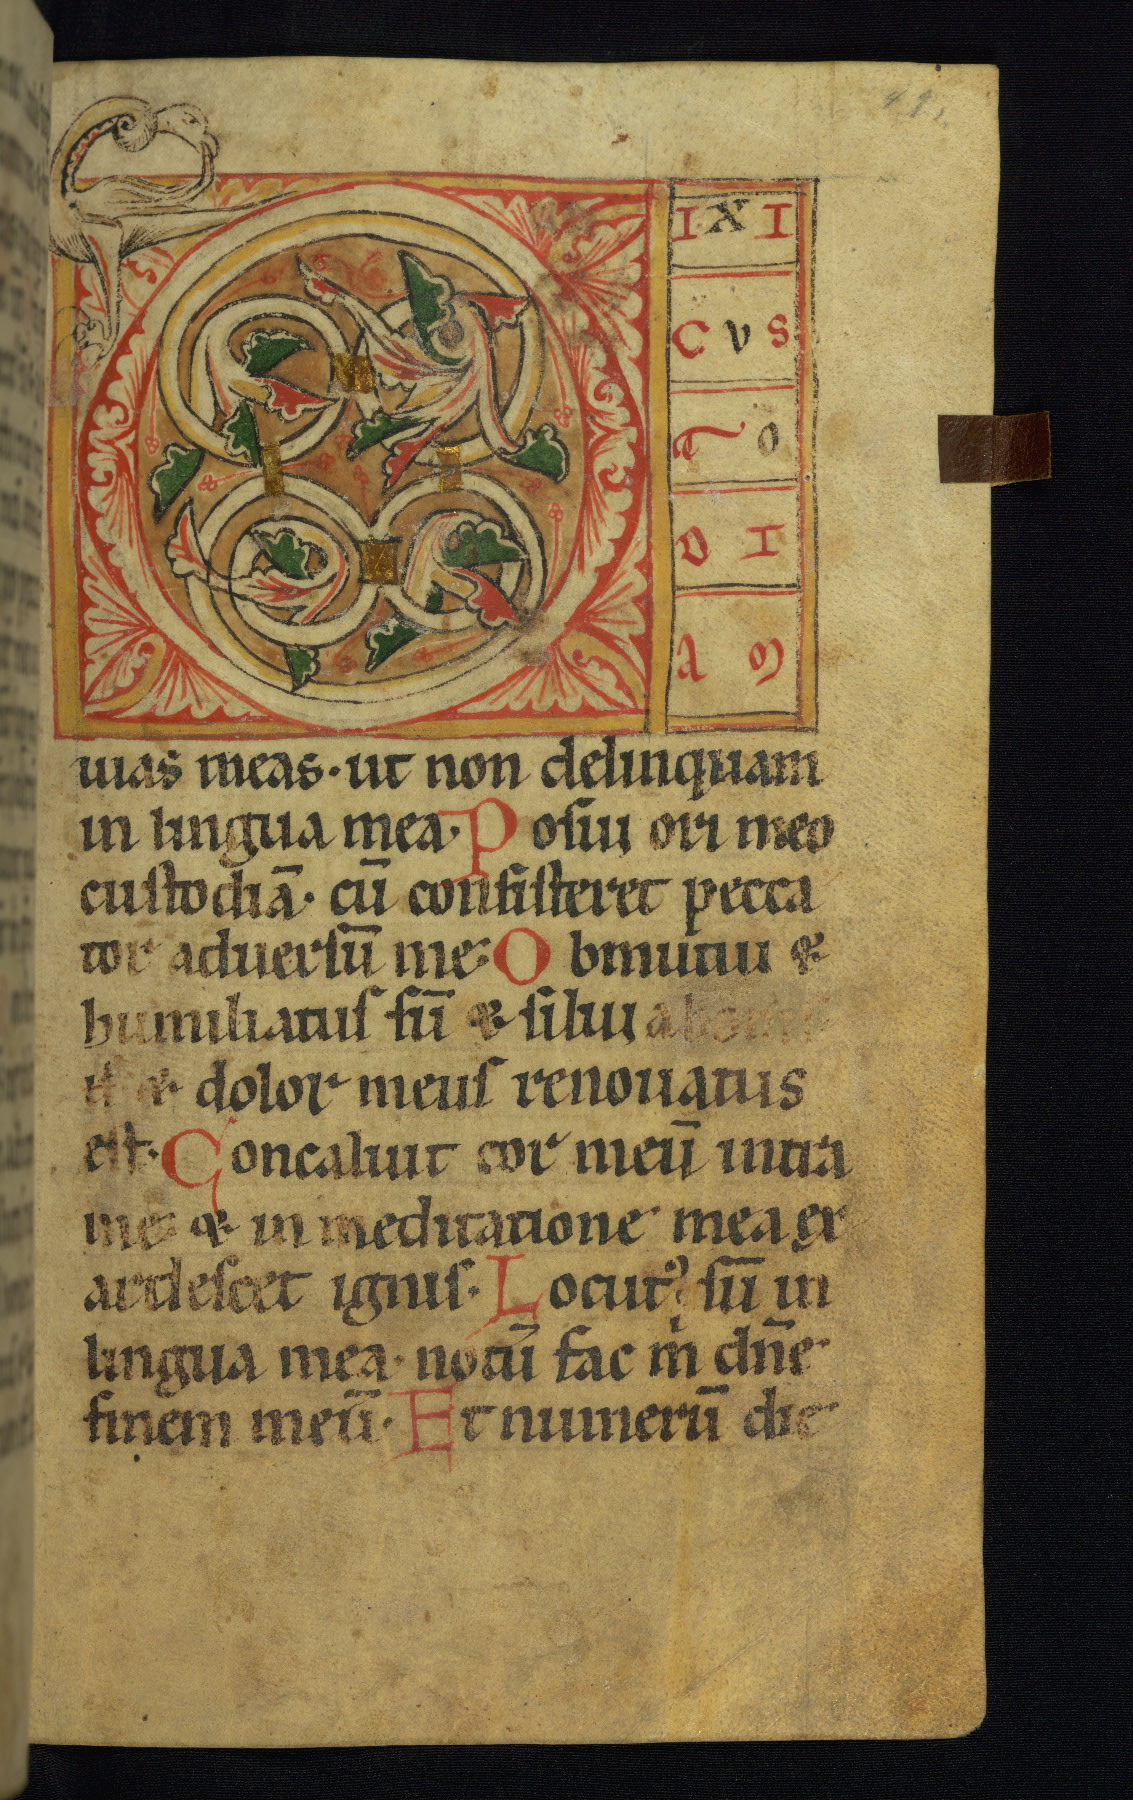 D I X I
C V S
T O
D I
A M
uias meas· ut non delinquam
in lingua mea· Posui ori meo
custodiā· cū consisteret pecca
tor aduersū me: Obmutui &
humiliatus sū & silui a boni
s & dolor meus renouatus
est· Concaluit cor meū intra
me: & in meditatione mea ex
ardescet ignis· Locutꝰ sū in
lingua mea· notū fac m̍ dn̄e
finem meū· Et numerū die